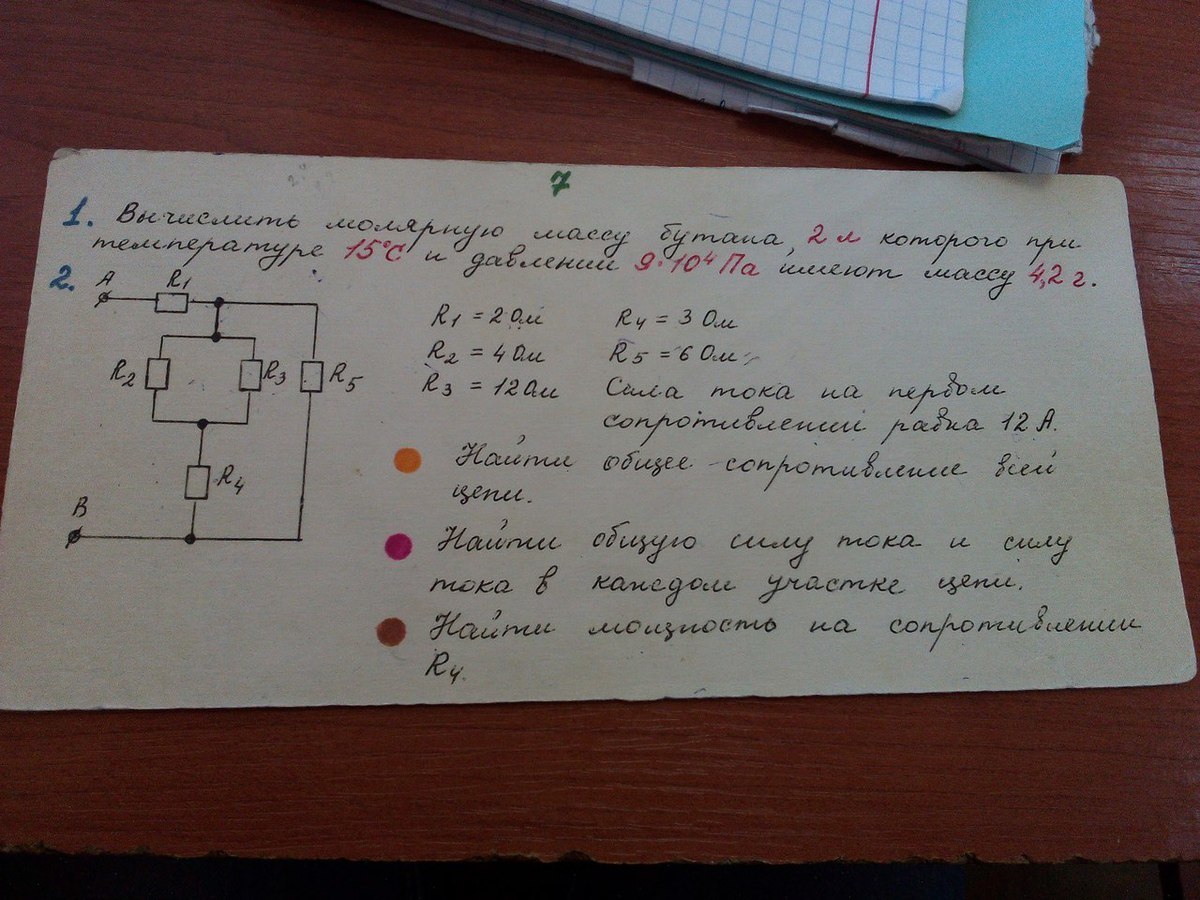 7
1. Вычислить молярную массу бутана, 2 л которого при
температуре 15°С и давлении 9·10⁴ Па имеют массу 4,2 г.
2.
A
R1
R2
R3
R5
R4
B
R1 = 2 Ом
R4 = 3 Ом
R2 = 4 Ом
R5 = 6 Ом
R3 = 12 Ом
Сила тока на первом
сопротивлении равна 12 А.
Найти общее сопротивление всей
цепи.
Найти общую силу тока и силу
тока в каждом участке цепи.
Найти мощность на сопротивлении
R4.